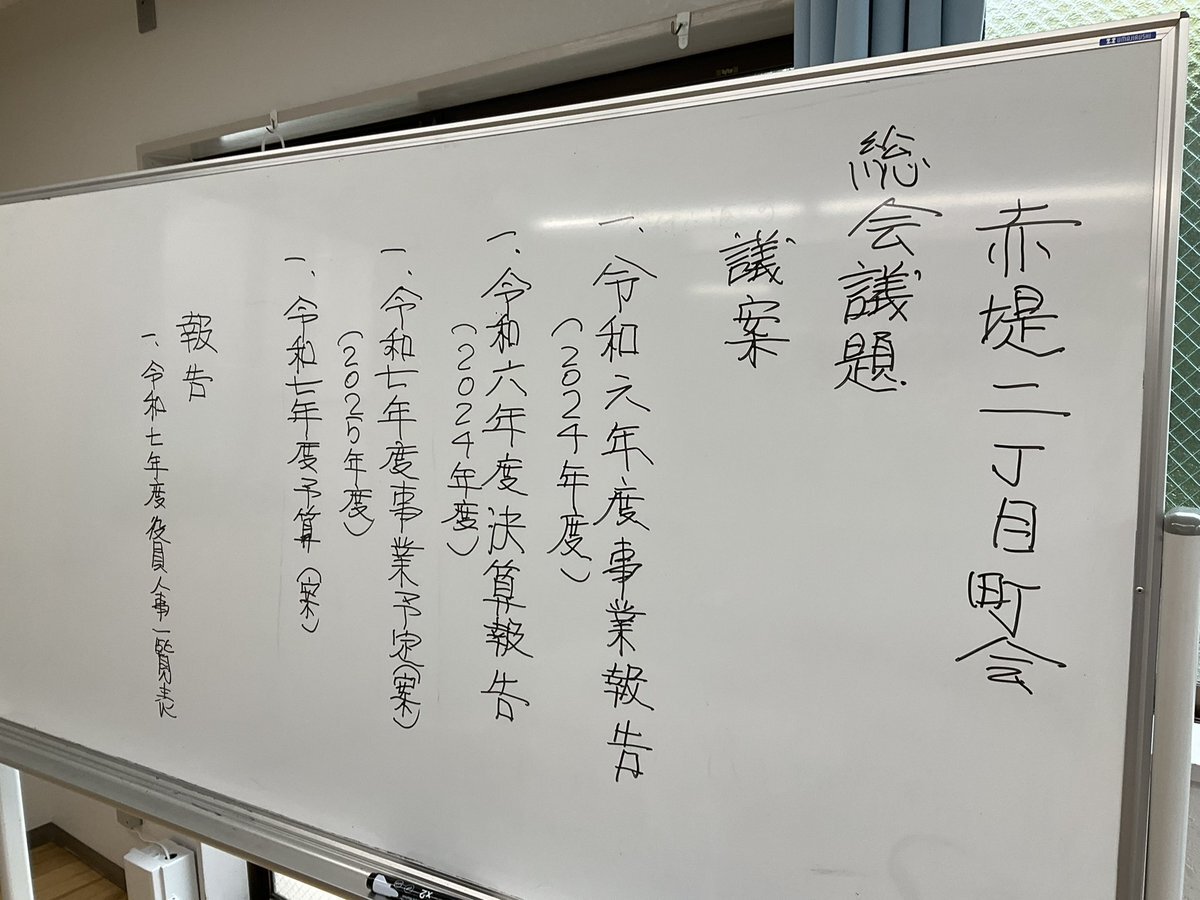 赤堤二丁目町会
総会議題
議案
一、令和六年度事業報告
(2024年度)
一、令和六年度決算報告
(2024年度)
一、令和七年度事業予定(案)
(2025年度)
一、令和七年度予算(案)
報告
一、令和七年度役員人事一覧表
UMAJIRUSHI